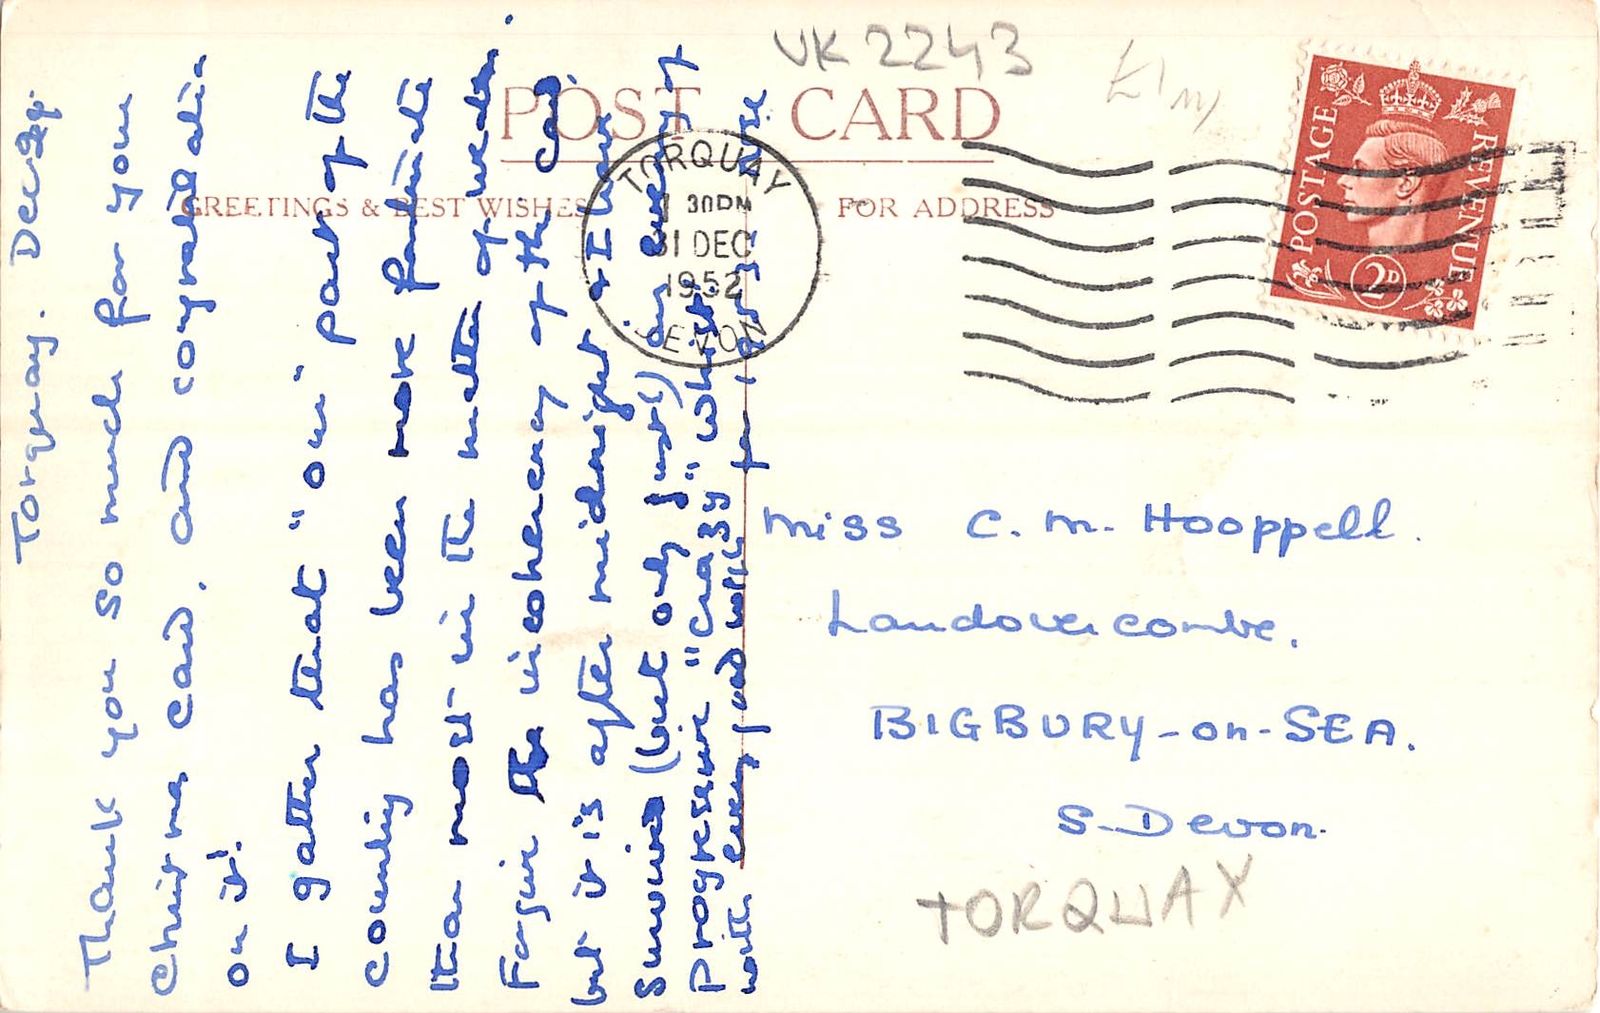 VK 2243
POST CARD
GREETINGS & BEST WISHES
FOR ADDRESS
TORQUAY
1 30PM
31 DEC
1952
DEVON
POSTAGE
REVENUE
2D
Torquay. Dec
Thank you so much for your
Christmas card, and congratulations
on it!
I gather that "our" part of the
country has been more fortunate
than most in the matter of weather.
Forgive the incoherency of the card,
but it is after midnight & I have
survived (but only just!) an evening of
Progressive "Crazy" Whist.
with every good wish for
Miss C. M. Hooppell.
Landovercombe.
BIGBURY-on-SEA.
S-Devon.
TORQUAY